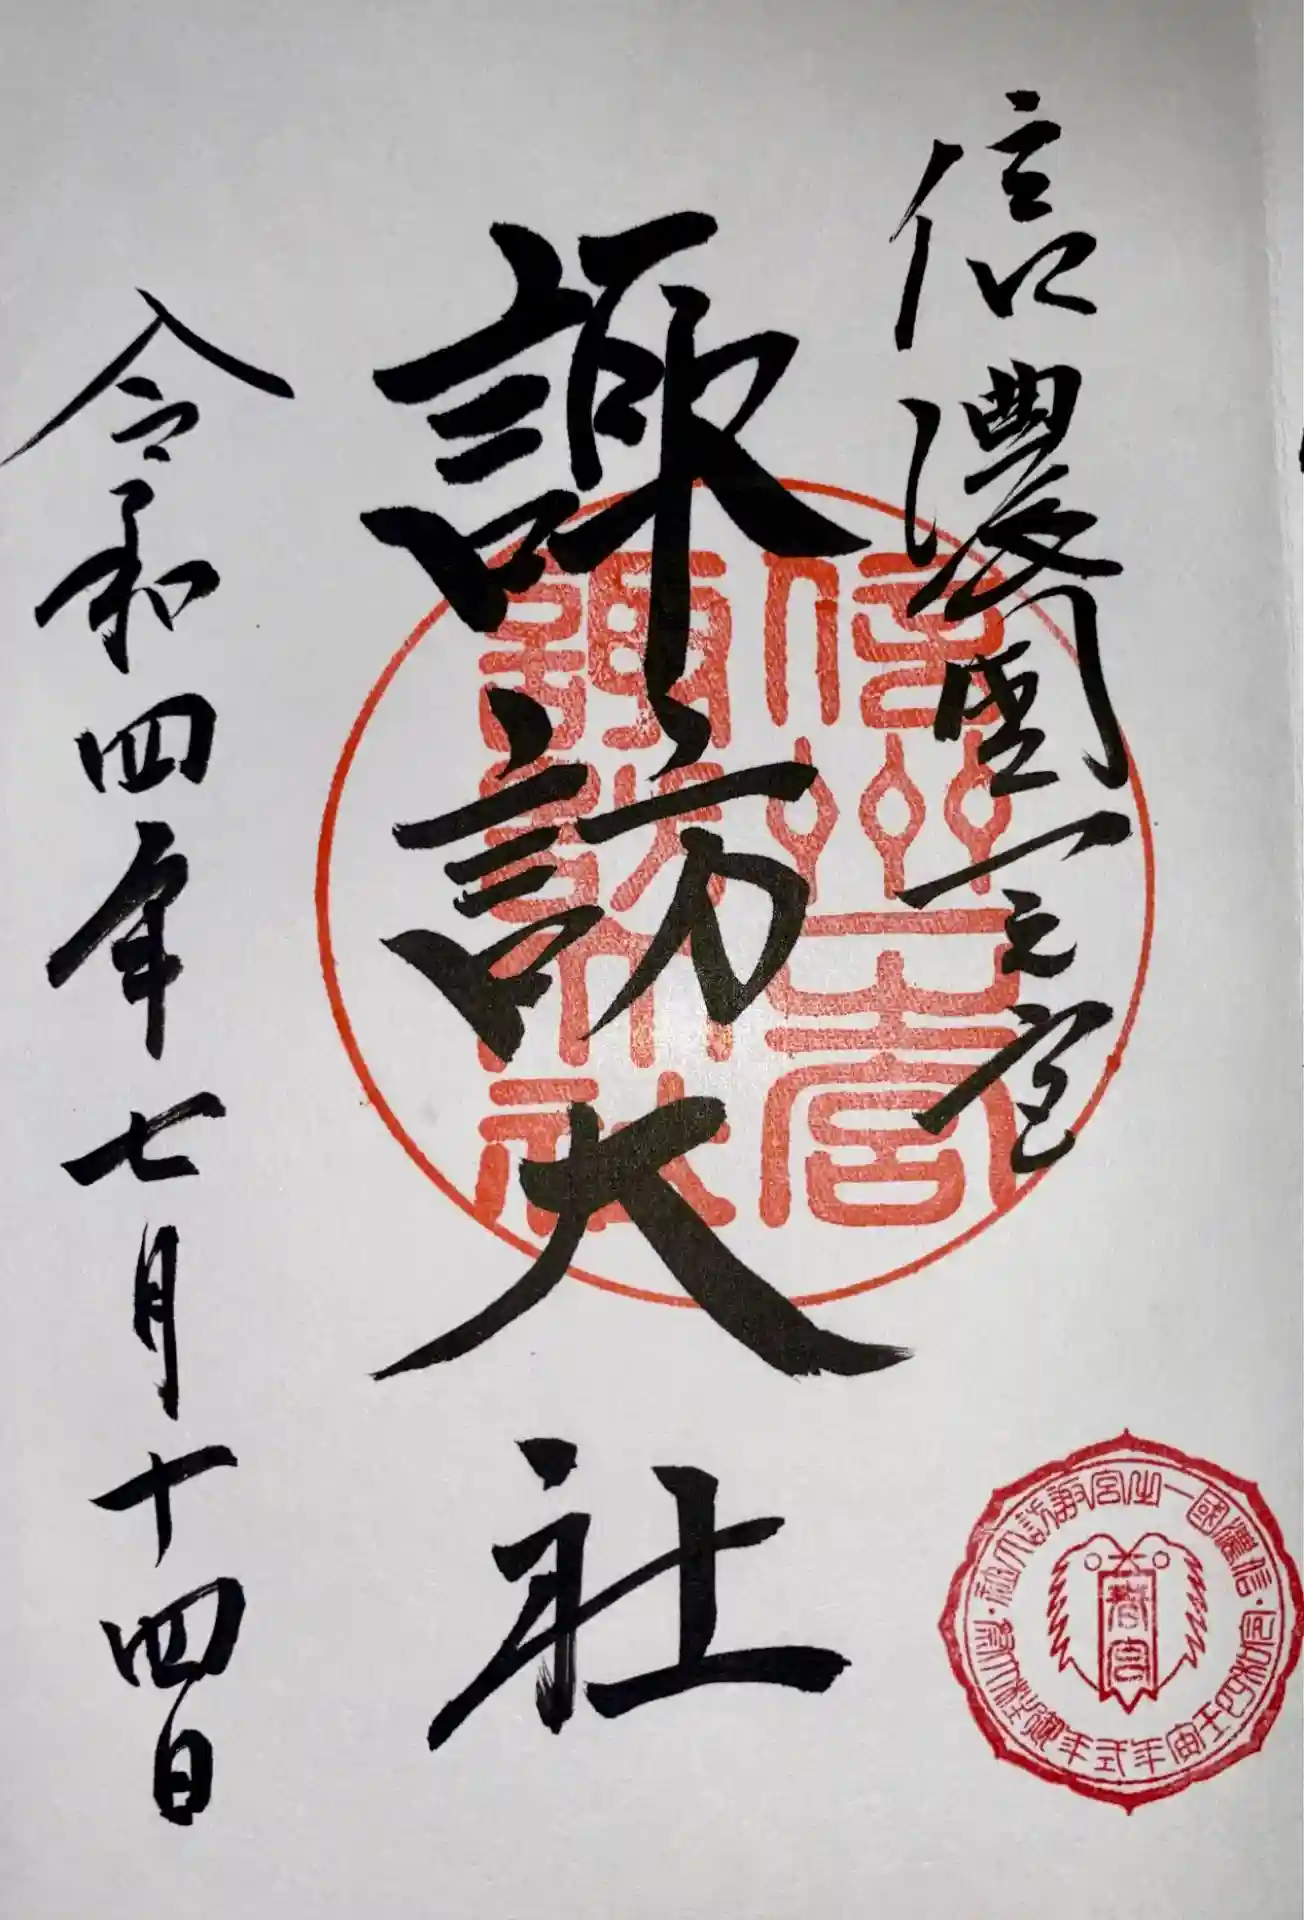 信濃國一之宮
諏訪大社
令和四年七月十四日
信州一之宮
諏訪大社
信濃國一之宮諏訪大社
令和四壬寅年式年御柱大祭
春宮